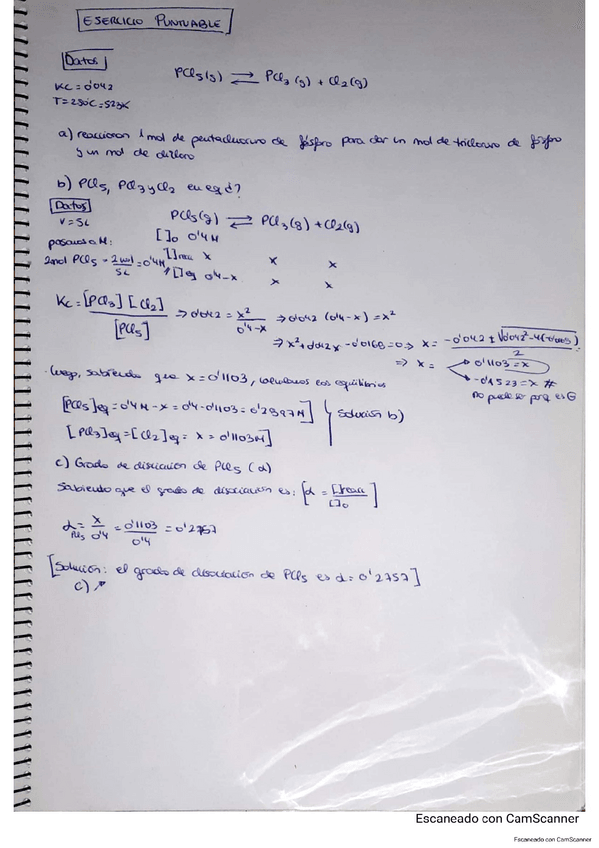 EJERCICIO PUNTUABLE
Datos
PCl5(g) ⇌ PCl3(g) + Cl2(g)
KC = 0'042
T = 250ºC = 523K
a) reaccionan 1 mol de pentacloruro de fósforo para dar un mol de tricloruro de fósforo
y un mol de dicloro
b) PCl5, PCl3 y Cl2 en eq ¿?
Datos
V = 5L
PCl5(g) ⇌ PCl3(g) + Cl2(g)
pasamos a M:
[]0 0'4M
2mol PCl5 - 2mol/5L = 0'4M
[]reac x x x
[]eq 0'4-x x x
KC = [PCl3][Cl2]/[PCl5] ⇒ 0'042 = x²/0'4-x ⇒ 0'042 (0'4-x) = x²
⇒ x² + 0'042x - 0'0168 = 0 ⇒ x = -0'042 ±
2
⇒ x = 0'1103 = x
-0'1523 = x #
no puede ser
Luego, sabiendo que x = 0'1103, los equilibrios
[PCl5]eq = 0'4M - x = 0'4 - 0'1103 = 0'2897M
Solución b)
[PCl3]eq = [Cl2]eq = x = 0'1103M
c) Grado de disociación de PCl5 (α)
Sabiendo que el grado de disociación es: [α = []reac/[]0]
α PCl5 = x/0'4 = 0'1103/0'4 = 0'2757
[Solución: el grado de disociación de PCl5 es α = 0'2757]
c)
Escaneado con CamScanner
Escaneado con CamScanner